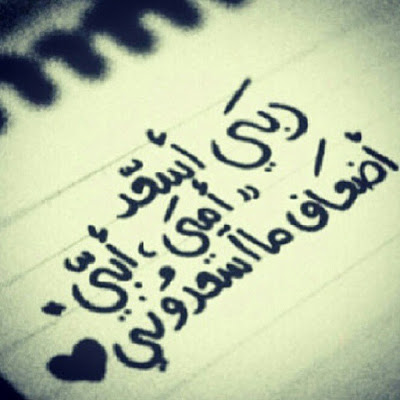 ربيَ أسعّد
" أميَ ، أبيّ "
أضعَاف ما آسعدُوني ♥